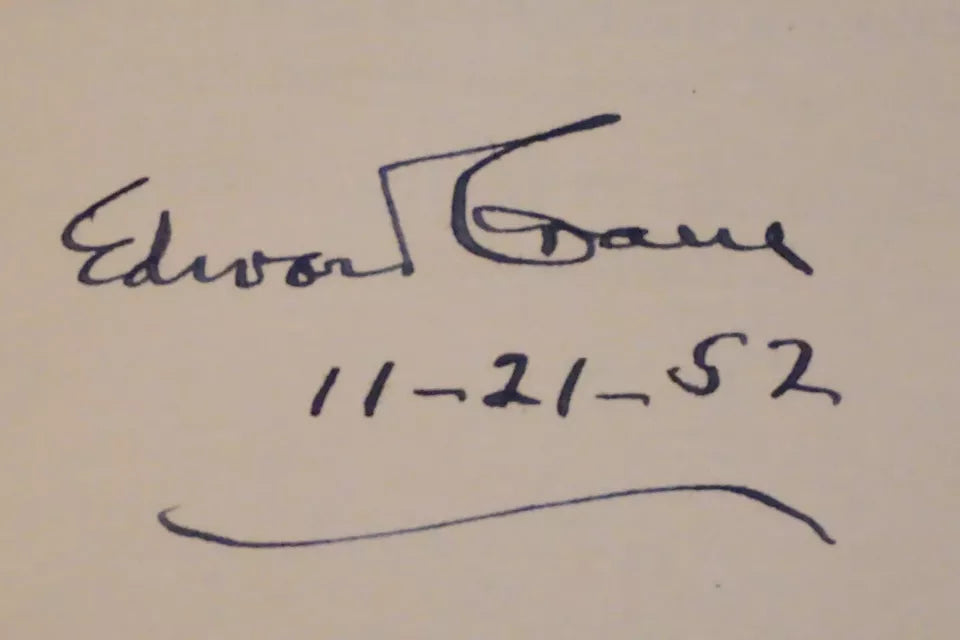 Edward Crane
11-21-52